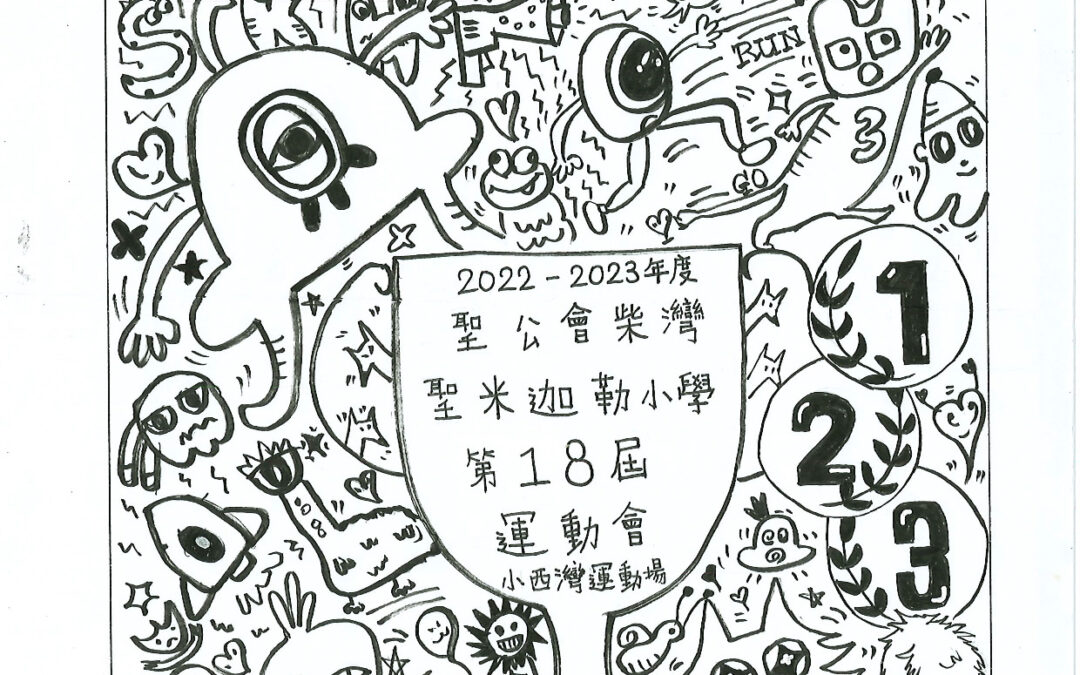 RUN
3
GO
2022-2023年度
聖公會柴灣
聖米迦勒小學
第18屆
運動會
小西灣運動場
1
2
3